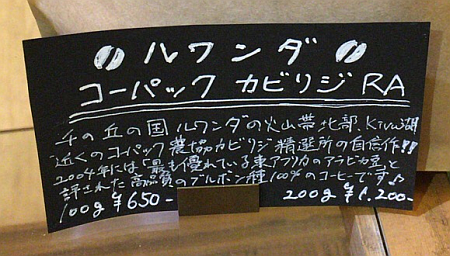 ルワンダ
コーパック カビリジ RA
千の丘の国 ルワンダの火山帯北部、Kivu湖
近くのコーパック農協カビリジ精選所の自信作!!
2004年には「最も優れている東アフリカのアラビカ豆」と
評された高品質のブルボン種100%のコーヒーです♪
100g ¥650- 200g ¥1,200-